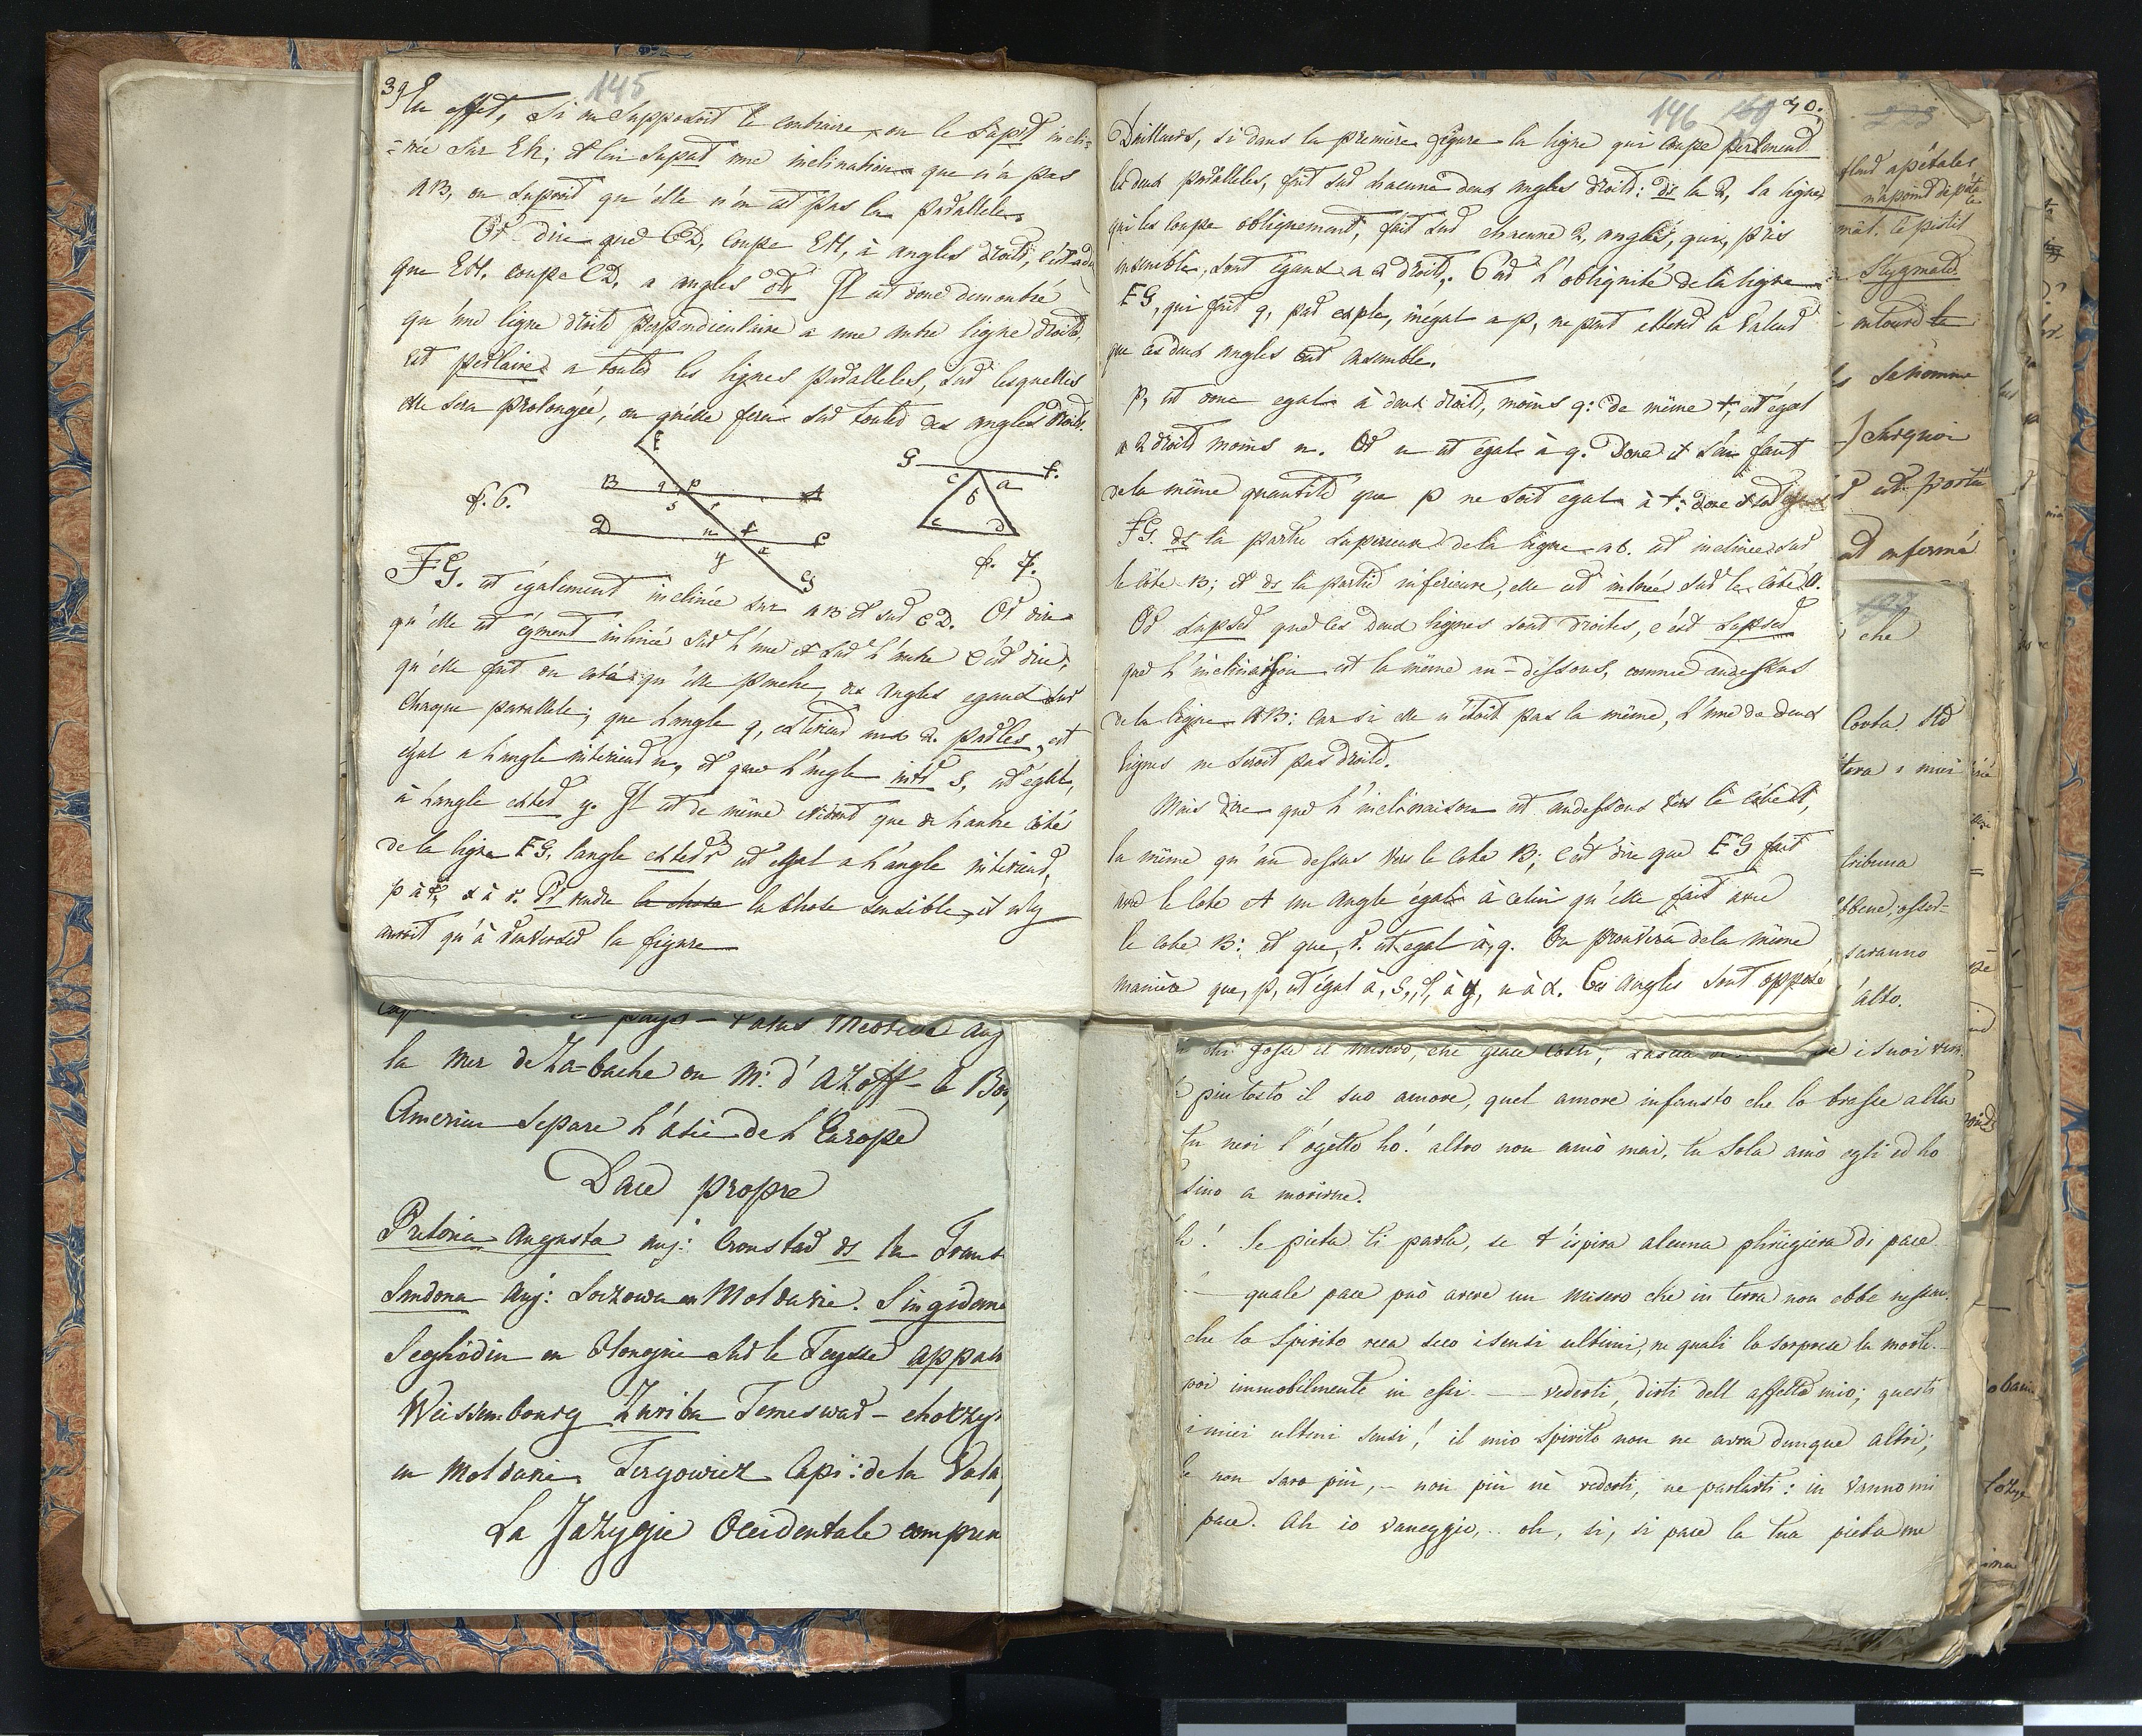 39 145
En effet, si on supposoit le contraire, ou le supst incli-
-née sur EH; et lui supst une inclination que n'a pas
AB, on suposoit qu'elle n'en est pas la parallele.
Or dire que CD, coupe EH, à angles droits, c'est a dir
que EH. coupe CD, a angles dts Il est donc demontré
qu'une ligne droite perpendiculaire a une autre ligne droite,
est perlaire a toutes les lignes paralleles, sur lesquelles
elle sera prolongée, ou qu'elle fera sur toutes des angles droits.
E
B q p A
s r
f. 6.
D n t C
y x
G
G c a F.
b
e d
f. 7.
FG. est également inclinée sur AB et sur CD. Or dire
qu'elle est égment inclinée sur l'une et sur l'autre c'est dire,
qu'elle fait du coté qu'elle penche, des angles egaux sur
chaque parallele; que l'angle q, exterieur aux 2. parles, est
égal a l'angle interieur n, et que l'angle intr s, est égal,
à l'angle exter y. Il est de même évident que de l'autre côté
de la ligne FG, l'angle exter r est egal a l'angle interieur,
p à t, x à r. Pr rendre la chose la chose sensible, il n'y
auroit qu'à renverser la figure
146 40.
D'ailleurs, si dans la première figure la ligne qui coupe perlment
les deux paralleles, fait sur chacune deux angles droits: ds la 2, la ligne
qui les coupe obliquement, fait sur chacune 2, angles, qui, pris
ensemble, sont égaux a 2 droits. Car l'obliquité de la ligne
FG, qui fait q, par exple, inégal a p, ne peut alterer la valeur
que ces deux angles ont ensemble.
p, est donc egal à deux droits, moins q: de même t, est égal
a 2 droits moins n. Or n est egal à q. Donc il s'en faut
de la même quantité que p ne soit egal à t: donc
FG. ds la partie superieure de la ligne ab. est inclinée sur
le côté B; et ds la partie inferieure, elle est inlnée sur le côté A.
Or supser que les deux lignes sont droites, c'est supser
que l'inclination est la même au-dessous, comme audessus
de la ligne AB: car si elle n'étoit pas la même, l'une de deux
lignes ne seroit pas droite.
Mais dire que l'inclinaison est audessous vers le côté A,
la même qu'au dessus vers le coté B; c'est dire que FG fait
avec le coté A un angle égal à celui qu'elle fait avec
le coté B: et que, r. est egal à, q. On prouvera de la même
manière que, p, est égal à, s, t, à y, n à x. Ces angles sont opposé
pays Palus Meotides auj
la mer de Za-bache ou M: d'Azoff - le Bos
Cimerien separe l'asie de l'Europe
Dace propre
Pretoria Augusta auj: Cronstad ds la Trans
Sandona auj: Sorzowa en Moldavie. Singidona
Seghédin en Hongrie sur le Teysse appar
Weissembourg Zuriba Temeswar - choczy
en Moldavie, Tergowiez Capi: de la Vala
La Jazygie Occidentale compren
chi fosse il misero, che giace costi, lascia i suoi
piutosto il suo amore, quel amore infausto che lo trasse alla
tu neri l'ogetto ho! altro non amò mai, tu sola amò egli ed ho
sino a morirne.
Se pieta ti parla, se t'ispira alcuna phrigiera di pace
quale pace può avere un misero che in terra non ebbe nessun
che lo spirito reca seco i sensi ultimi, ne quali lo sorprese la morte.
poi immobilmente in essi. — vederti, dirti dell affetto mio; questi
i miei ultimi sensi! il mio spirito non ne avra dunque altri;
non saro più, - non più nè vederti, ne parlarti: in vanno mi
pace. Ah io vaneggio,.. oh, si, si pace la tua pieta me
223
apétales
n'a point de péta
le pistil
Stygmate
entoure le
se nomme
surquoi
enfermé
197
che
tribuna
saranno
alto.